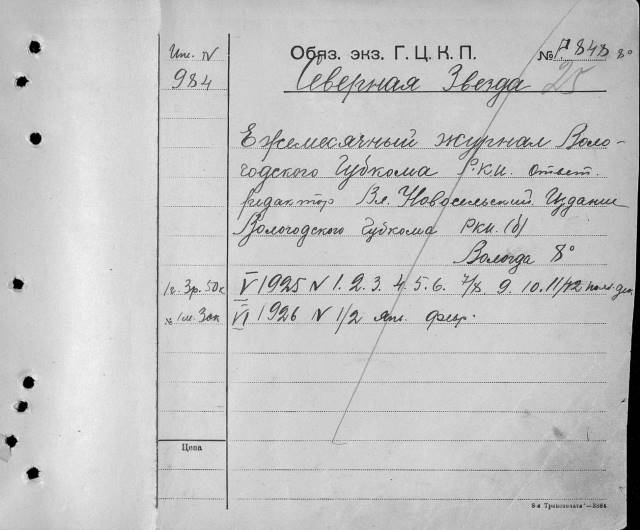 Инв. N
984
Обяз. экз. Г. Ц. К. П.
№ 848 8°
Северная Звезда 25
Ежемесячный журнал Воло-
годского Губкома Р.К.П. ответ.
редактор Вл. Новосельский. Издание
Вологодского Губкома РКП. (б)
Вологда 8°
1г. 3р. 50к V 1925 N 1. 2. 3. 4. 5. 6. 7/8. 9. 10. 11/12
№ 1м. 30к VI 1926 N 1/2 янв. февр.
Цена